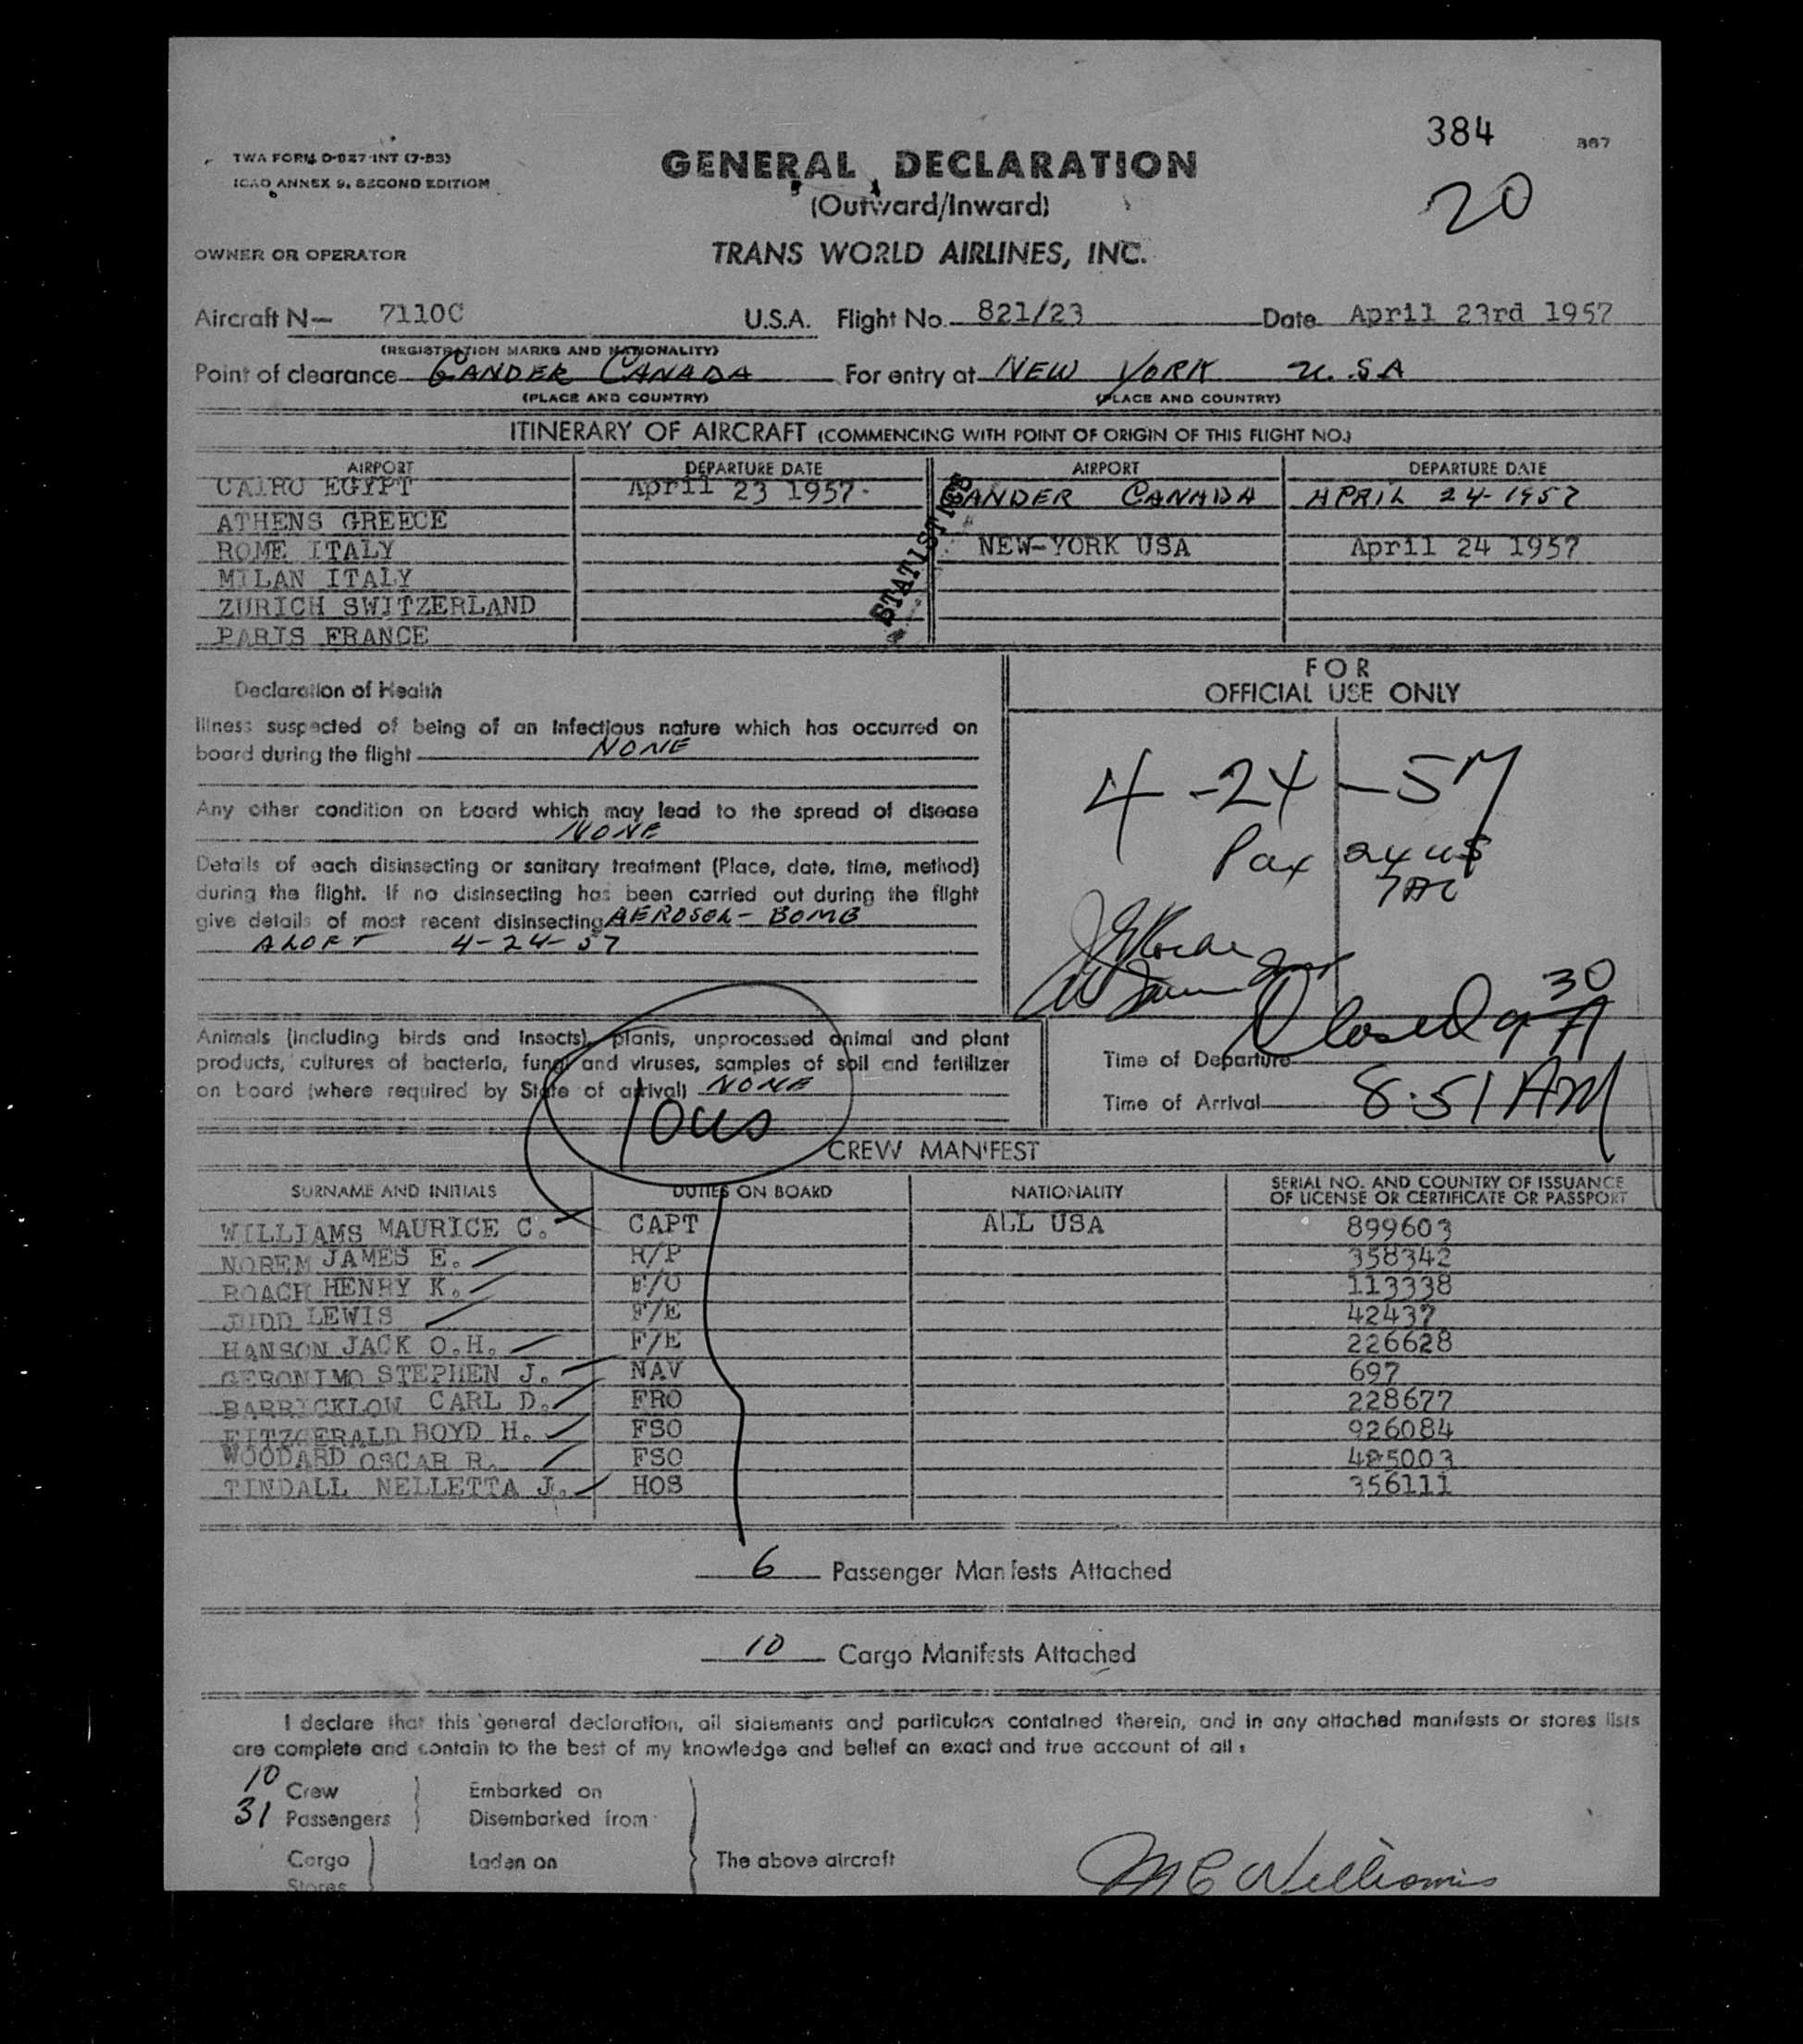 384
867
TWA FORM D-827 INT (7-53)
ICAO ANNEX 9, SECOND EDITION
GENERAL DECLARATION
(Outward/Inward)
20
OWNER OR OPERATOR
TRANS WORLD AIRLINES, INC.
Aircraft N— 7110C U.S.A. Flight No. 821/23 Date April 23rd 1957
(REGISTRATION MARKS AND NATIONALITY)
Point of clearance GANDER CANADA For entry at NEW YORK U.SA
(PLACE AND COUNTRY) (PLACE AND COUNTRY)
ITINERARY OF AIRCRAFT (COMMENCING WITH POINT OF ORIGIN OF THIS FLIGHT NO.)
AIRPORT DEPARTURE DATE AIRPORT DEPARTURE DATE
CAIRO EGYPT April 23 1957. GANDER CANADA APRIL 24-1957
ATHENS GREECE
ROME ITALY NEW-YORK USA April 24 1957
MILAN ITALY
ZURICH SWITZERLAND
PARIS FRANCE
STATISTICS
Declaration of Health
Illness suspected of being of an infectious nature which has occurred on
board during the flight NONE
Any other condition on board which may lead to the spread of disease
NONE
Details of each disinsecting or sanitary treatment (Place, date, time, method)
during the flight. If no disinsecting has been carried out during the flight
give details of most recent disinsecting AEROSOL- BOMB
ALOFT 4-24-57
FOR
OFFICIAL USE ONLY
4-24-57
Pax 24 US
7 AC
Animals (including birds and insects), plants, unprocessed animal and plant
products, cultures of bacteria, fungi and viruses, samples of soil and fertilizer
on board (where required by State of arrival) NONE
10us
Closed 9 30 A
Time of Departure
Time of Arrival 8:51 AM
CREW MANIFEST
SURNAME AND INITIALS DUTIES ON BOARD NATIONALITY SERIAL NO. AND COUNTRY OF ISSUANCE
OF LICENSE OR CERTIFICATE OR PASSPORT
WILLIAMS MAURICE C. CAPT ALL USA 899603
NOREM JAMES E. R/P 358342
ROACH HENRY K. F/O 113338
JUDD LEWIS F/E 42437
HANSON JACK O.H. F/E 226628
GERONIMO STEPHEN J. NAV 697
BARRICKLOW CARL D. FRO 228677
FITZGERALD BOYD H. FSO 926084
WOODARD OSCAR R. FSO 485003
TINDALL NELLETTA J. HOS 356111
6 Passenger Manifests Attached
10 Cargo Manifests Attached
I declare that this general declaration, all statements and particulars contained therein, and in any attached manifests or stores lists
are complete and contain to the best of my knowledge and belief an exact and true account of all:
10 Crew Embarked on
31 Passengers Disembarked from
Cargo Laden on The above aircraft
Stores
M C Williams